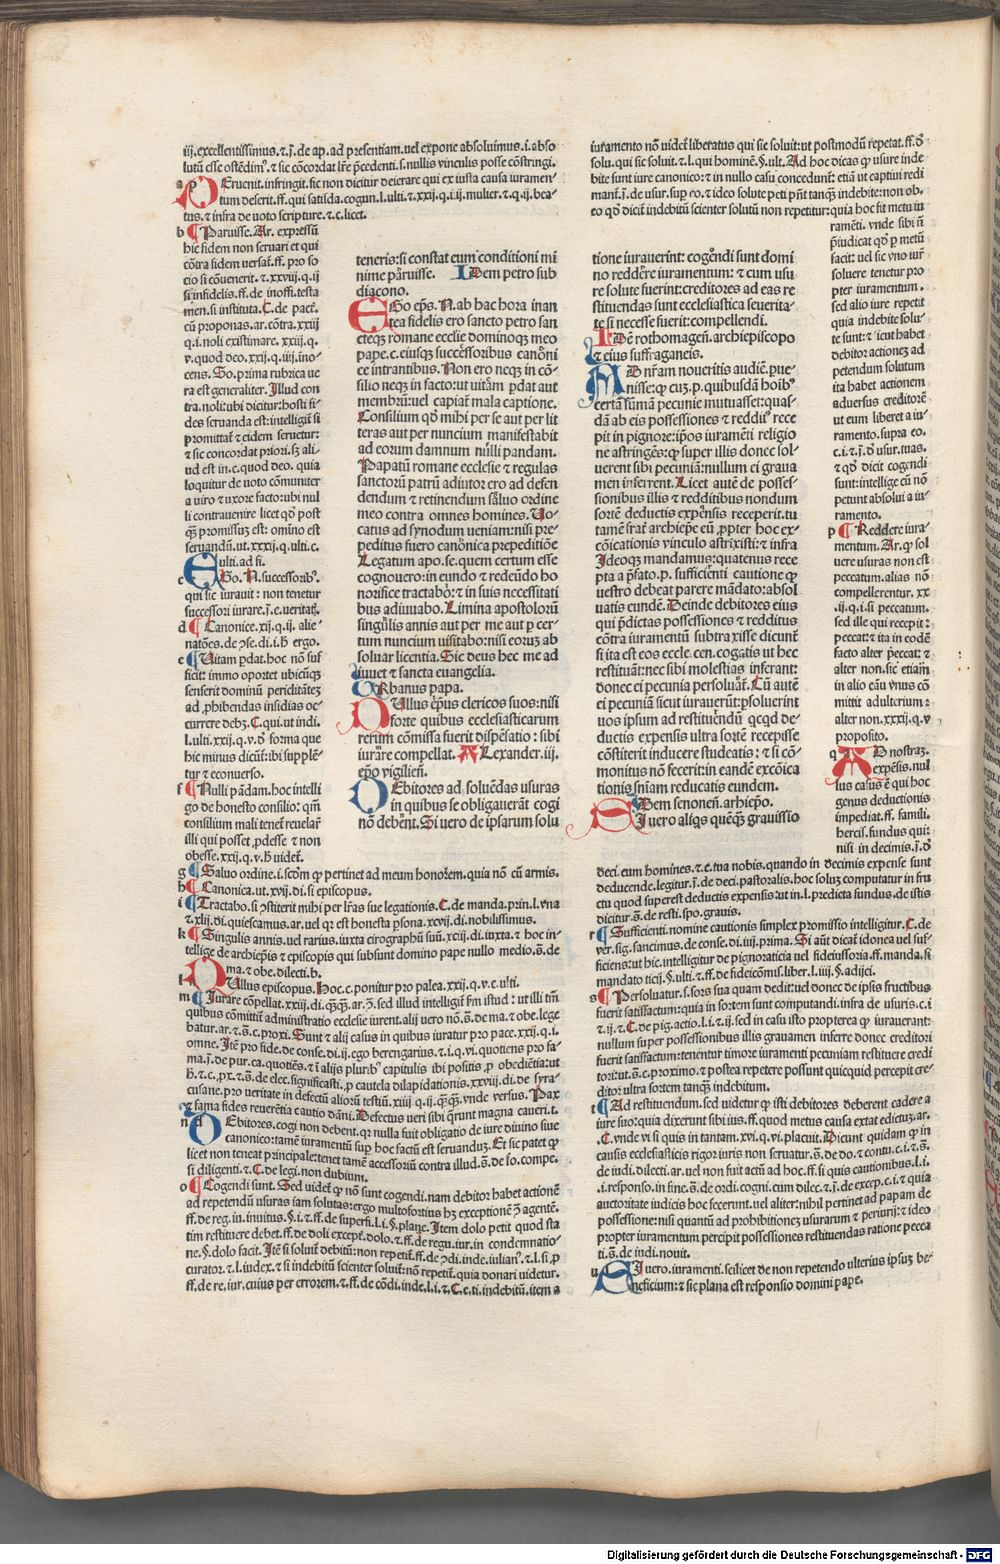 iij. excellentissimus. ⁊ j̄. de ap. ad presentiam. uel expone absoluimus. i. abso
lutū esse ostēdimꝰ. ⁊ sic cōcordat lr̄e p̄cedenti. s. nullis vinculis posse cōstringi.
tum deserit. ff. qui satisda. cogun. l. ulti. ⁊ xxij. q. i. ij. mulier. ⁊ q. ij. bea
tus. ⁊ infra de uoto scripture. ⁊ c. licet.
b Paruisse. Ar. expressū
hic fidem non seruari et qui
cōtra fidem uersat̄. ff. pro so
cio si cōuenerit. ⁊ xxviij. q. ij
si infidelis. ff. de inoffi. testa
men. si instituta. C. de pact̄.
cū proponas. ar. cōtra. xxij
q. i. noli existimare. xxiij. q.
v. quod deo. xxij. q. iiij. ino
cens. So. prima rubrica ue
ra est generaliter. Illud con
tra. noli: ubi dicitur: hosti fi-
des seruanda est: intelligit̄ si
promittat̄ ⁊ eidem seruetur:
⁊ sic concordat priori. sꝫ ali-
ud est in. c. quod deo. quia
loquitur de uoto cōmuniter
a uiro ⁊ uxore facto: ubi nul
li contrauenire licet qd̓ post
promissuꝫ est: omīno est
seruandū. ut. xxxij. q. ulti. c.
ulti. ad fi.
c EGo. N. successoribꝰ.
qui sic iurauit: non tenetur
successori iurare. j̄. e. veritatꝫ.
d Canonice. xij. q. ij. alie-
natōes. de ꝯse. di. i. ħ ergo.
e Vitam ꝑdat. hoc nō suf
ficit: immo oportet ubicūqꝫ
senserit dominū periditatēꝫ
ad ꝓhibendas insidias oc-
currere debꝫ. C. qui. ut indi.
l. ulti. xxij. q. v. đ forma que
hic minus dicūt̄: ibi supplē-
tur ⁊ econuerso.
f Nulli pādam. hoc intelli
go de honesto consilio: qm̄
consilium mali tenet̄ reuelar̄
illi qui posset ꝓdesse ⁊ non
obesse. xxij. q. v. ħ uidet̄.
g Saluo ordine. i. scōm ꝙ pertinet ad meum honorem. quia nō cū armis.
h Canonica. ut. xvij. di. si episcopus.
i Tractabo. si ꝯstiterit mihi per lr̄as sue legationis. C. de manda. prin. l. vna
⁊ xlij. di. quiescamus. ar. uel qꝛ est honesta ꝑsona. xcvij. di. nobilissimus.
k Singulis annis. uel rarius. iuxta cirographū suū. xciij. di. iuxta. ⁊ hoc in-
tellige de archiep̄is ⁊ episcopis qui subsunt domino pape nullo medio. s̄. de
ma. ⁊ obe. dilecti. b.
l NUllus episcopus. Hoc. c. ponitur pro palea. xxij. q. v. c. ulti.
m Iurare cōpellat. xxiij. di. q̄qꝫ. ar. ꝯ. sed illud intelligit̄ fm̄ istud: ut illi tm̄
quibus cōmittit̄ administratio ecclesie iurent. alij uero nō. s̄. de ma. ⁊ obe. lege
batur. ar. ⁊ s̄. c. proxi. Sunt ⁊ alij casus in quibus iuratur pro pace. xxij. q. i.
omne. Itē pro fide. de conse. di. ij. ego berengarius. ⁊ i. q. vi. quotiens pro fa-
ma. j̄. de pur. ca. quotiēs. ⁊ ī alijs pluribꝰ capitulis ibi positis ꝓ obediētia: ut
ħ. ⁊ c. ꝓx. ⁊ s̄. de elec. significasti. ꝓ cautela dilapidationis. xxviij. di. de syra-
cusane. pro veritate in defectū aliorū testiū. xiiij. q. ij. q̄qꝫ. vnde versus. Pax
⁊ fama fides reuerētia cautio dāni. Defectus ueri sibi q̄runt magna caueri. t.
n DEbitores. cogi non debent. qꝛ nulla fuit obligatio de iure diuino siue
canonico: tamē iuramentū sup̄ hoc factū est seruanduꝫ. Et sic patet ꝙ
licet non teneat principale: tenet tamē accessoriū contra illud. s̄. de so. compe.
si diligenti. ⁊ C. de legi. non dubium.
o Cogendi sunt. Sed uidet̄ ꝙ nō sunt cogendi. nam debitor habet actionē
ad repetendū usuras iam solutas: ergo multofortius hꝫ exceptionē ꝯ̄ agentē.
ff. de reg. iu. inuitus. §. i. ⁊ ff. de superfi. l. i. §. plane. Item dolo petit quod sta
tim restituere debet. ff. de doli except̄. dolo. ⁊ ff. de regu. iur. in condemnatio-
ne. §. dolo facit. Itē si soluit̄ debitū: non repetit̄. ff. de ꝯdi. inde. iulianꝰ. ⁊ l. si ꝓ
curator. ⁊ l. index. ⁊ si indebitū scienter soluit̄: nō repetit̄. quia donari uidetur.
ff. de re. iur. cuius per errorem. ⁊ ff. de cōdi. inde. l. i. ⁊ C. e. ti. indebitū. item a
teneris: si constat eum conditioni mi
nime paruisse. IDem petro sub
diacono.
EGo ep̄s. N. ab hac hora inan
tea fidelis ero sancto petro san
cteqꝫ romane ecclie dominoqꝫ meo
pape. c. eiusqꝫ successoribus canōni
ce intrantibus. Non ero neqꝫ in cō-
silio neqꝫ in facto: ut uitam ꝑdat aut
membrū: uel capiat̄ mala captione.
Consilium qd̓ mihi per se aut per lit
teras aut per nuncium manifestabit
ad eorum damnum nulli pandam.
Papatū romane ecclesie ⁊ regulas
sanctorū patrū adiutor ero ad defen
dendum ⁊ retinendum saluo ordine
meo contra omnes homines. Uo-
catus ad synodum ueniam: nisi pre-
peditus fuero canōnica prepeditiōe
Legatum apo. se. quem certum esse
cognouero: in eundo ⁊ redeūdo ho
norifice tractabo: ⁊ in suis necessitati
bus adiuuabo. Limina apostolorū
singulis annis aut per me aut ꝑ cer-
tum nuncium uisitabo: nisi eorum ab
soluar licentia. Sic deus hec me ad
iuuet ⁊ sancta euangelia.
URbanus papa.
NUllus ep̄us clericos suos: nisi
forte quibus ecclesiasticarum
rerum cōmissa fuerit dispēsatio: sibi
iurare compellat. ALexander. iii.
ep̄o vigilien̄.
DEbitores ad soluēdas usuras
in quibus se obligauerāt cogi
nō debēnt. Si uero de ipsarum solu
tione iurauerint: cogēndi sunt domi
no reddēre iuramentum: ⁊ cum usu
re solute fuerint: creditores ad eas re
stituendas sunt ecclesiastica seuerita-
te si necesse fuerit: compellendi.
IDē rothomagen̄. archiepiscopo
⁊ eius suffraganeis.
AD nr̄am noueritis audiē. ꝑue-
nisse: ꝙ cuꝫ. p. quibusdā hoībꝰ
certā sūmā pecunie mutuasset: quas-
dā ab eis possessiones ⁊ redditꝰ rece
pit in pignore: ip̄os iuramēti religio
ne astringēs: ꝙ super illis donec sol-
uerent sibi pecuniā: nullum ei graua
men inferrent. Licet autē de posses-
sionibus illis ⁊ redditibus nondum
sortē deductis expēnsis receperit. tu
tamē fratꝛ archiep̄e eū ꝓpter hoc ex-
cōicationis vinculo astrixisti: ⁊ infra
Ideoqꝫ mandamus: quatenus rece
pta a p̄fato. p. sufficiēti cautione ꝙ
uestro debeat parere mādato: absol
uatis eundē. Deinde debitores eius
qui p̄dictas possessiones ⁊ redditus
cōtra iuramentū subtraxisse dicunt̄
si ita est eos eccle. cen. cogatis ut hec
restituāt: nec sibi molestias inferant:
donec ei pecunia persoluat̄. Cū autē
ei pecuniā sicut iurauerūt: ꝑsoluerint
uos ipsum ad restituēndū qcqd de-
ductis expensis ultra sortē recepisse
cōstiterit inducere studeatis: ⁊ si cō-
monitus nō fecerit: in eandē excōica
tionis snīam reducatis eundem.
IDem senonen̄. arhiep̄o.
SI uero aliqs quēqꝫ grauissio
iuramento nō videt̄ liberatus qui sic soluit: ut postmodū repetat. ff. đ
solu. qui sic soluit. ⁊ l. qui hominē. §. ult. Ad hoc dicas ꝙ usure inde
bite sunt iure canonico: ⁊ in nullo casu concedunt̄: etiā ut captiui redi
mant̄. j̄. de usur. sup̄ eo. ⁊ ideo solute peti pn̄t tanqꝫ indebite: non ob.
eo qd̓ dicit̄ indebitū scienter solutū non repetitur: quia hoc fit metu iu
ramēti. vnde sibi ñ
p̄iudicat qd̓ ꝑ metū
facit: uel sic vno iur̄
soluere tenetur pro
pter iuramentum.
sed alio iure repetit
quia indebite solu-
te sunt: ⁊ icut habet
debitor actionez ad
petendum solutum
ita habet actionem
aduersus creditorē
ut eum liberet a iu-
ramento. supra eo.
c. i. ⁊ j̄. đ usur. tuas.
⁊ qd̓ dicit cogendi
sunt: intellige cū nō
petunt absolui a iu-
ramento.
p Reddere iura-
mentum. Ar. ꝙ sol
uere usuras non est
peccatum. alias nō
compellerentur. xx
ij. q. i. si peccatum.
sed ille qui recepit:
peccat: ⁊ ita in eodē
facto alter peccat: ⁊
alter non. sic etiam
in alio cāu vnus cō
mittit adulterium:
alter non. xxxij. q. v
proposito.
q AD nostraꝫ.
expēsis. nul
lus casus ē qui hoc
genus deductionis
impediat. ff. famili.
hercis. fundus qui:
nisi in decimis. j̄. đ
deci. cum homines. ⁊ c. tua nobis. quando in decimis expense sunt
deducende. legitur. j̄. de deci. pastoralis. hoc soluꝫ computatur in fru
ctu quod superest deductis expensis: ut in. l. predicta fundus. de istis
dicitur. s̄. de resti. spo. grauis.
r Sufficienti. nomine cautionis simplex promissio intelligitur. C. de
ver. sig. sancimus. de conse. di. iiij. prima. Si aūt dicat̄ idonea uel suf-
ficiens: ut hic. intelligitur de pignoraticia uel fideiussoria. ff. manda. si
mandato ticij. §. ulti. ⁊ ff. de fideicōmis. liber. l. iiij. §. adijci.
s Persoluatur. s. sors sua quam dedit: uel donec de ipsis fructibus
fuerit satisfactum: quia in sortem sunt computandi. infra de usuris. c. i
⁊ ij. ⁊ C. de pig. actio. l. i. ⁊ ij. sed in casu isto propterea ꝙ iurauerant:
nullum super possessionibus illis grauamen inferre donec creditori
fuerit satisfactum: tenentur timore iuramenti pecuniam restituere credi
tori: ut. s̄. c. proximo. ⁊ postea repetere possunt quicquid percepit cre-
ditor ultra sortem tanqꝫ indebitum.
t Ad restituendum. sed uidetur ꝙ isti debitores deberent cadere a
iure suo: quia dixerunt sibi ius. ff. quod metus causa extat edictuꝫ. ar.
C. vnde vi si quis in tantam. xvi. q. vi. placuit. Dicunt quidam ꝙ in
causis ecclesiasticis rigor iuris non seruatur. s̄. de do. ⁊ contu. c. i. ⁊. s̄.
de iudi. dilecti. ar. uel non fuit actū ad hoc. ff. si quis cautionibus. l. i.
i. responso. in fine. s̄. de ordi. cogni. cum dilec. ⁊ j̄. de excep. c. i. ⁊ quia
auctoritate iudicis hoc fecerunt. uel aliter: nihil pertinet ad papam de
possessione: nisi quantū ad prohibitionez usurarum ⁊ periurij: ⁊ ideo
propter iuramentum percipit possessiones restituendas ratione pecca
ti. s̄. de iudi. nouit.
u SI uero. iuramenti. scilicet de non repetendo ulterius ipsuꝫ be-
neficium: ⁊ sic plana est responsio domini pape.
Digitalisierung gefördert durch die Deutsche Forschungsgemeinschaft - DFG